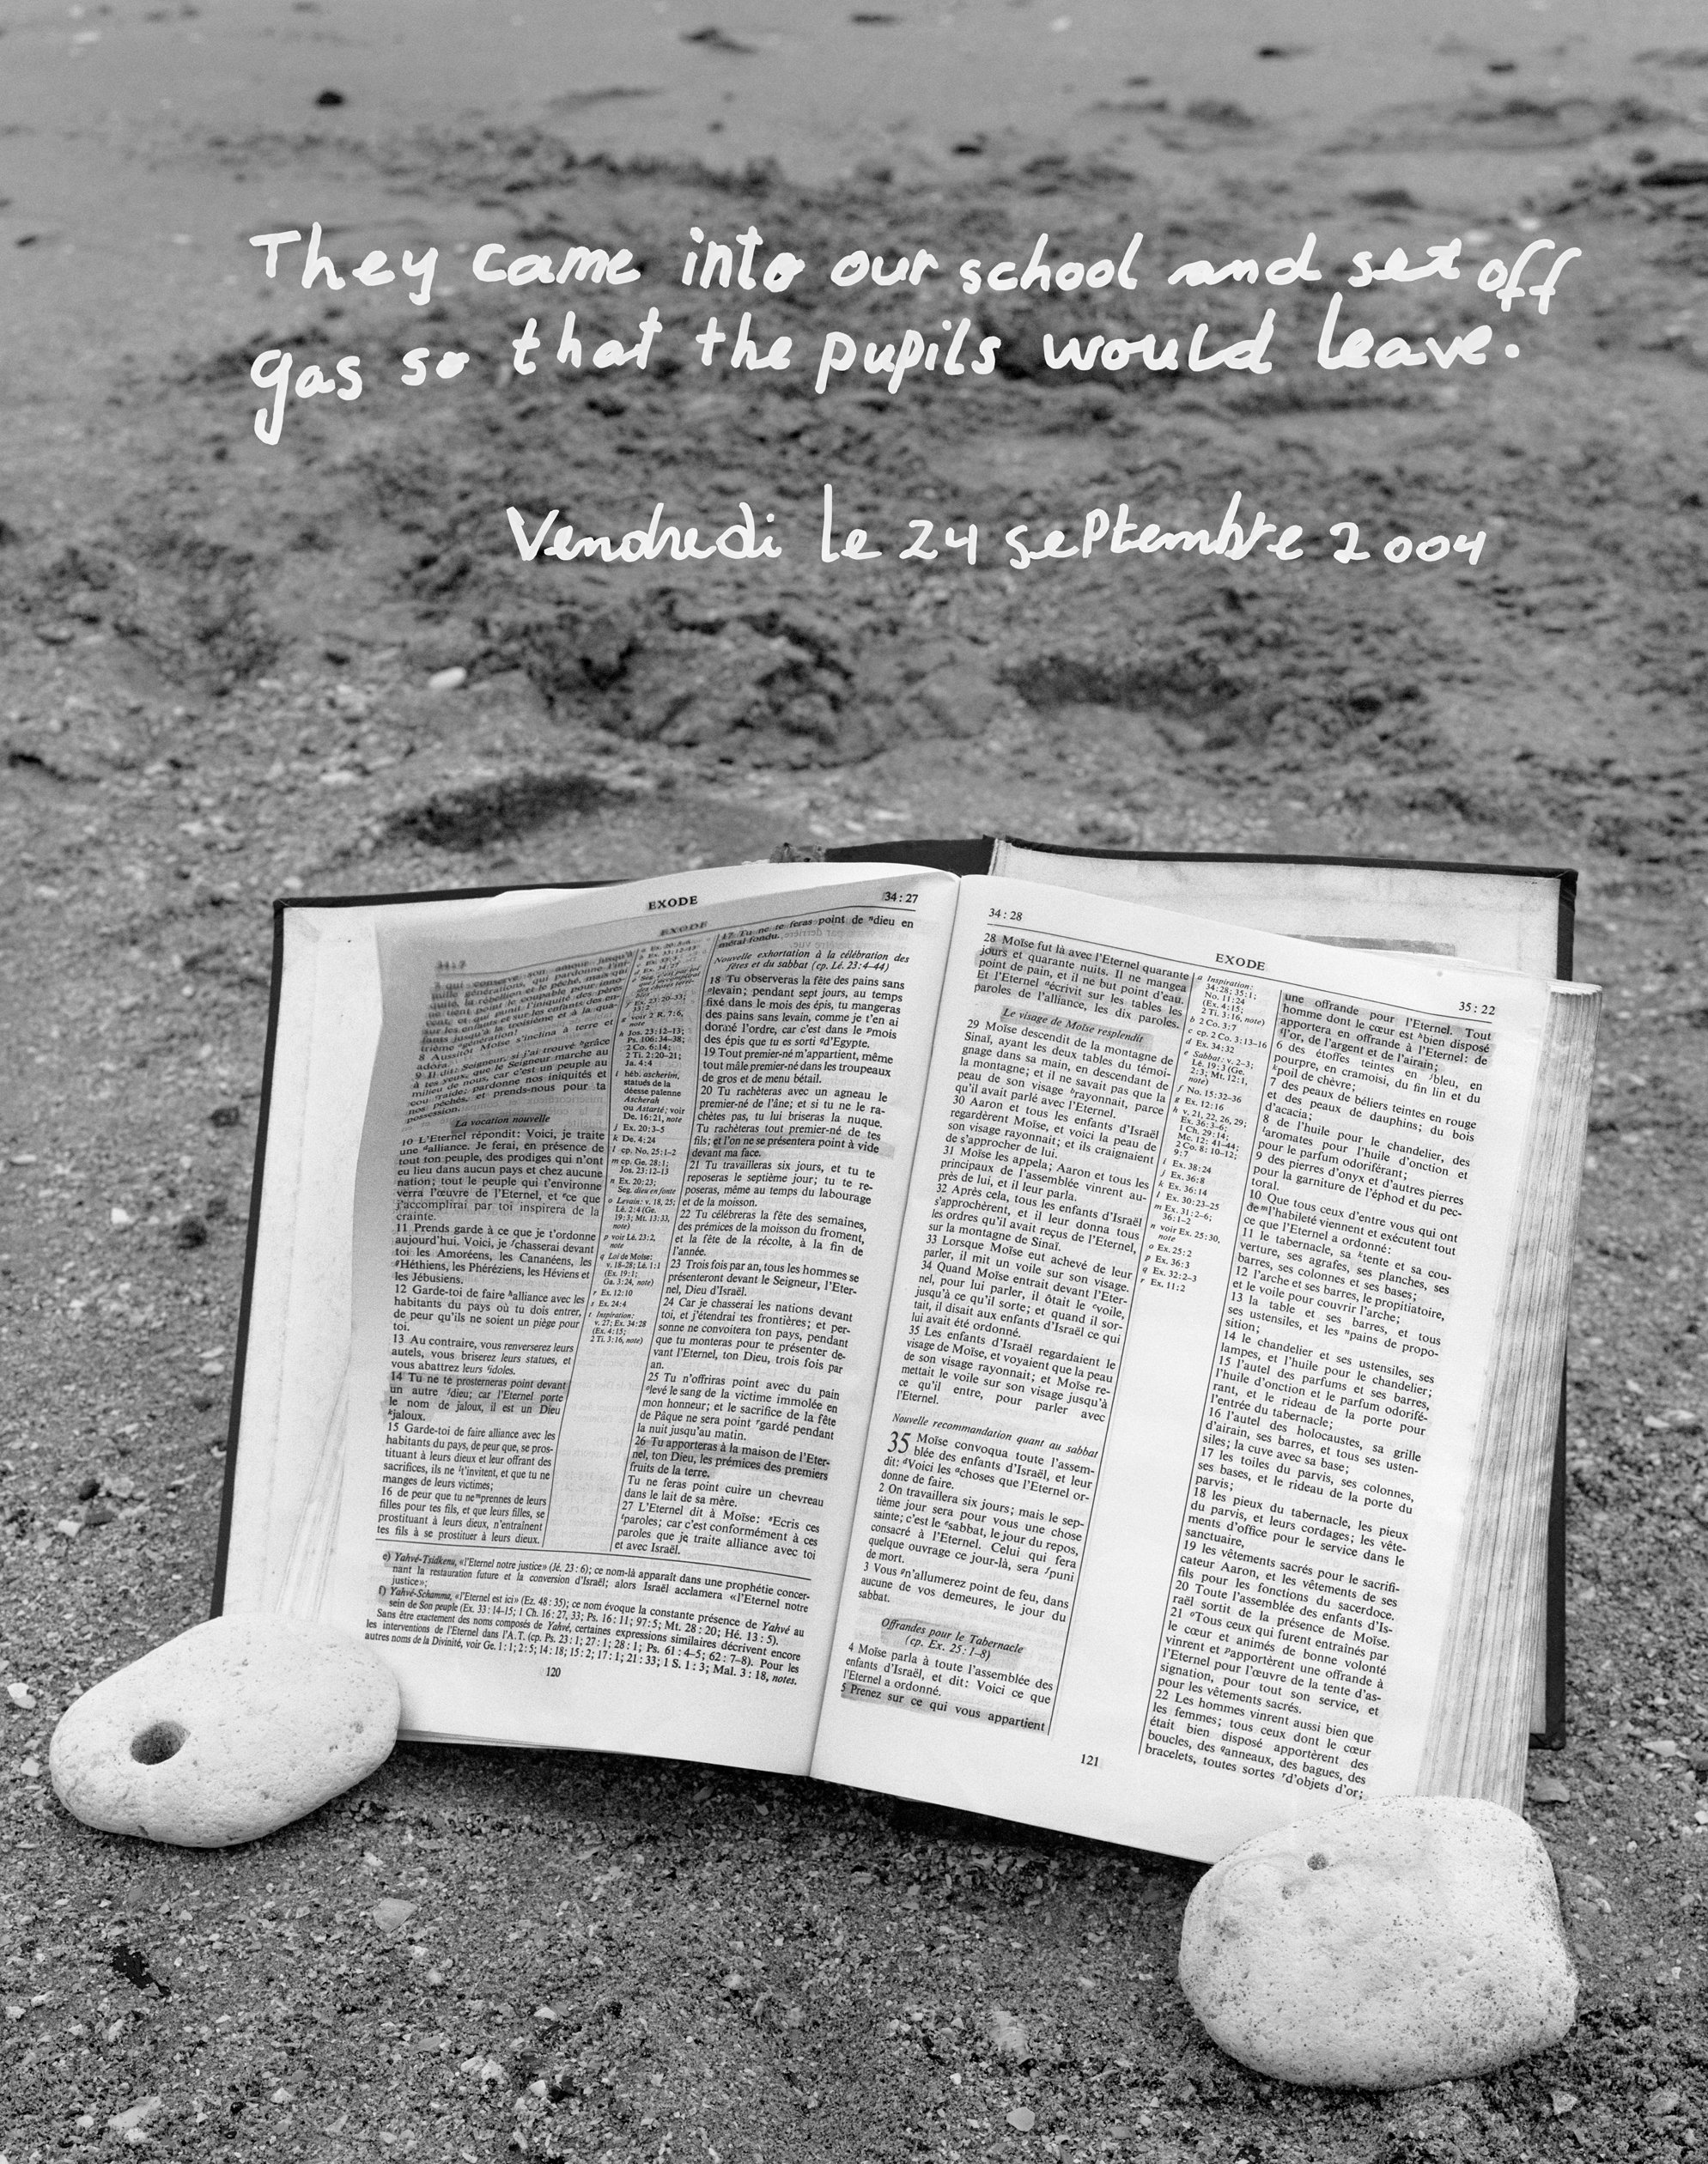 They came into our school and set off
gas so that the pupils would leave.
Vendredi le 24 septembre 2004
EXODE
34 : 27
EXODE
34 : 7
8 Aussitôt Moïse s'inclina à terre et
adora.
9 Il dit: Seigneur, si j'ai trouvé grâce
à tes yeux, que le Seigneur marche au
milieu de nous, car c'est un peuple au
cou raide; pardonne nos iniquités et
nos péchés, et prends-nous pour ta
possession.
La vocation nouvelle
10 L'Eternel répondit: Voici, je traite
une alliance. Je ferai, en présence de
tout ton peuple, des prodiges qui n'ont
eu lieu dans aucun pays et chez aucune
nation; tout le peuple qui t'environne
verra l'œuvre de l'Eternel, et ce que
j'accomplirai par toi inspirera de la
crainte.
11 Prends garde à ce que je t'ordonne
aujourd'hui. Voici, je chasserai devant
toi les Amoréens, les Cananéens, les
Héthiens, les Phéréziens, les Héviens et
les Jébusiens.
12 Garde-toi de faire alliance avec les
habitants du pays où tu dois entrer,
de peur qu'ils ne soient un piège pour
toi.
13 Au contraire, vous renverserez leurs
autels, vous briserez leurs statues, et
vous abattrez leurs idoles.
14 Tu ne te prosterneras point devant
un autre dieu; car l'Eternel porte
le nom de jaloux, il est un Dieu
jaloux.
15 Garde-toi de faire alliance avec les
habitants du pays, de peur que, se pros-
tituant à leurs dieux et leur offrant des
sacrifices, ils ne t'invitent, et que tu ne
manges de leurs victimes;
16 de peur que tu ne prennes de leurs
filles pour tes fils, et que leurs filles, se
prostituant à leurs dieux, n'entraînent
tes fils à se prostituer à leurs dieux.
g voir 2 R. 7:6,
note
h Jos. 23:12-13;
Ps. 106:34-38;
2 Co. 6:14;
2 Ti. 2:20-21;
Ja. 4:4
i héb. ascherim,
statues de la
déesse païenne
Ascherah
ou Astarté; voir
De. 16:21, note
j Ex. 20:3-5
k De. 4:24
l cp. No. 25:1-2
m cp. Ge. 28:1;
Jos. 23:12-13
n Ex. 20:23;
Seg. dieu en fonte
o Levain: v. 18, 25;
Lé. 2:4 (Ge.
19:3; Mt. 13:33,
note)
p voir Lé. 23:2,
note
q Loi de Moïse:
v. 18-28; Lé. 1:1
(Ex. 19:1;
Ga. 3:24, note)
r Ex. 12:10
s Ex. 24:4
t Inspiration:
v. 27; Ex. 34:28
(Ex. 4:15;
2 Ti. 3:16, note)
17 Tu ne te feras point de dieu en
métal fondu.
Nouvelle exhortation à la célébration des
fêtes et du sabbat (cp. Lé. 23:4-44)
18 Tu observeras la fête des pains sans
levain; pendant sept jours, au temps
fixé dans le mois des épis, tu mangeras
des pains sans levain, comme je t'en ai
donné l'ordre, car c'est dans le mois
des épis que tu es sorti d'Egypte.
19 Tout premier-né m'appartient, même
tout mâle premier-né dans les troupeaux
de gros et de menu bétail.
20 Tu rachèteras avec un agneau le
premier-né de l'âne; et si tu ne le ra-
chètes pas, tu lui briseras la nuque.
Tu rachèteras tout premier-né de tes
fils; et l'on ne se présentera point à vide
devant ma face.
21 Tu travailleras six jours, et tu te
reposeras le septième jour; tu te re-
poseras, même au temps du labourage
et de la moisson.
22 Tu célébreras la fête des semaines,
des prémices de la moisson du froment,
et la fête de la récolte, à la fin de
l'année.
23 Trois fois par an, tous les hommes se
présenteront devant le Seigneur, l'Eter-
nel, Dieu d'Israël.
24 Car je chasserai les nations devant
toi, et j'étendrai tes frontières; et per-
sonne ne convoitera ton pays, pendant
que tu monteras pour te présenter de-
vant l'Eternel, ton Dieu, trois fois par
an.
25 Tu n'offriras point avec du pain
levé le sang de la victime immolée en
mon honneur; et le sacrifice de la fête
de Pâque ne sera point gardé pendant
la nuit jusqu'au matin.
26 Tu apporteras à la maison de l'Eter-
nel, ton Dieu, les prémices des premiers
fruits de la terre.
Tu ne feras point cuire un chevreau
dans le lait de sa mère.
27 L'Eternel dit à Moïse: Ecris ces
paroles; car c'est conformément à ces
paroles que je traite alliance avec toi
et avec Israël.
e) Yahvé-Tsidkenu, «l'Eternel notre justice» (Jé. 23 : 6); ce nom-là apparaît dans une prophétie concer-
nant la restauration future et la conversion d'Israël; alors Israël acclamera «l'Eternel notre
justice»;
f) Yahvé-Schamma, «l'Eternel est ici» (Ez. 48 : 35); ce nom évoque la constante présence de Yahvé au
sein de Son peuple (Ex. 33 : 14-15; 1 Ch. 16 : 27, 33; Ps. 16 : 11; 97 : 5; Mt. 28 : 20; Hé. 13 : 5).
Sans être exactement des noms composés de Yahvé, certaines expressions similaires décrivent encore
les interventions de l'Eternel dans l'A.T. (cp. Ps. 23 : 1; 27 : 1; 28 : 1; Ps. 61 : 4-5; 62 : 7-8). Pour les
autres noms de la Divinité, voir Ge. 1 : 1; 2 : 5; 14 : 18; 15 : 2; 17 : 1; 21 : 33; 1 S. 1 : 3; Mal. 3 : 18, notes.
120
34 : 28
EXODE
35 : 22
28 Moïse fut là avec l'Eternel quarante
jours et quarante nuits. Il ne mangea
point de pain, et il ne but point d'eau.
Et l'Eternel écrivit sur les tables les
paroles de l'alliance, les dix paroles.
Le visage de Moïse resplendit
29 Moïse descendit de la montagne de
Sinaï, ayant les deux tables du témoi-
gnage dans sa main, en descendant de
la montagne; et il ne savait pas que la
peau de son visage rayonnait, parce
qu'il avait parlé avec l'Eternel.
30 Aaron et tous les enfants d'Israël
regardèrent Moïse, et voici la peau de
son visage rayonnait; et ils craignaient
de s'approcher de lui.
31 Moïse les appela; Aaron et tous les
principaux de l'assemblée vinrent au-
près de lui, et il leur parla.
32 Après cela, tous les enfants d'Israël
s'approchèrent, et il leur donna tous
les ordres qu'il avait reçus de l'Eternel,
sur la montagne de Sinaï.
33 Lorsque Moïse eut achevé de leur
parler, il mit un voile sur son visage.
34 Quand Moïse entrait devant l'Eter-
nel, pour lui parler, il ôtait le voile,
jusqu'à ce qu'il sorte; et quand il sor-
tait, il disait aux enfants d'Israël ce qui
lui avait été ordonné.
35 Les enfants d'Israël regardaient le
visage de Moïse, et voyaient que la peau
de son visage rayonnait; et Moïse re-
mettait le voile sur son visage jusqu'à
ce qu'il entre, pour parler avec
l'Eternel.
Nouvelle recommandation quant au sabbat
35 Moïse convoqua toute l'assem-
blée des enfants d'Israël, et leur
dit: Voici les choses que l'Eternel or-
donne de faire.
2 On travaillera six jours; mais le sep-
tième jour sera pour vous une chose
sainte; c'est le sabbat, le jour du repos,
consacré à l'Eternel. Celui qui fera
quelque ouvrage ce jour-là, sera puni
de mort.
3 Vous n'allumerez point de feu, dans
aucune de vos demeures, le jour du
sabbat.
Offrandes pour le Tabernacle
(cp. Ex. 25 : 1-8)
4 Moïse parla à toute l'assemblée des
enfants d'Israël, et dit: Voici ce que
l'Eternel a ordonné.
5 Prenez sur ce qui vous appartient
a Inspiration:
34:28; 35:1;
No. 11:24
(Ex. 4:15;
2 Ti. 3:16, note)
b 2 Co. 3:7
c cp. 2 Co. 3:13-16
d Ex. 34:32
e Sabbat: v. 2-3;
Lé. 19:3 (Ge.
2:3; Mt. 12:1,
note)
f No. 15:32-36
g Ex. 12:16
h v. 21, 22, 26, 29;
Ex. 36:3-6;
1 Ch. 29:14;
Mc. 12: 41-44;
2 Co. 8: 10-12;
9:7
i Ex. 38:24
j Ex. 36:8
k Ex. 36:14
l Ex. 30:23-25
m Ex. 31:2-6;
36:1-2
n voir Ex. 25:30,
note
o Ex. 25:2
p Ex. 36:3
q Ex. 32:2-3
r Ex. 11:2
une offrande pour l'Eternel. Tout
homme dont le cœur est bien disposé
apportera en offrande à l'Eternel: de
l'or, de l'argent et de l'airain;
6 des étoffes teintes en bleu, en
pourpre, en cramoisi, du fin lin et du
poil de chèvre;
7 des peaux de béliers teintes en rouge
et des peaux de dauphins; du bois
d'acacia;
8 de l'huile pour le chandelier, des
aromates pour l'huile d'onction et
pour le parfum odoriférant;
9 des pierres d'onyx et d'autres pierres
pour la garniture de l'éphod et du pec-
toral.
10 Que tous ceux d'entre vous qui ont
de l'habileté viennent et exécutent tout
ce que l'Eternel a ordonné:
11 le tabernacle, sa tente et sa cou-
verture, ses agrafes, ses planches, ses
barres, ses colonnes et ses bases;
12 l'arche et ses barres, le propitiatoire,
et le voile pour couvrir l'arche;
13 la table et ses barres, et tous
ses ustensiles, et les pains de propo-
sition;
14 le chandelier et ses ustensiles, ses
lampes, et l'huile pour le chandelier;
15 l'autel des parfums et ses barres,
l'huile d'onction et le parfum odorifé-
rant, et le rideau de la porte pour
l'entrée du tabernacle;
16 l'autel des holocaustes, sa grille
d'airain, ses barres, et tous ses usten-
siles; la cuve avec sa base;
17 les toiles du parvis, ses colonnes,
ses bases, et le rideau de la porte du
parvis;
18 les pieux du tabernacle, les pieux
du parvis, et leurs cordages; les vête-
ments d'office pour le service dans le
sanctuaire,
19 les vêtements sacrés pour le sacrifi-
cateur Aaron, et les vêtements de ses
fils pour les fonctions du sacerdoce.
20 Toute l'assemblée des enfants d'Is-
raël sortit de la présence de Moïse.
21 Tous ceux qui furent entraînés par
le cœur et animés de bonne volonté
vinrent et apportèrent une offrande à
l'Eternel pour l'œuvre de la tente d'as-
signation, pour tout son service, et
pour les vêtements sacrés.
22 Les hommes vinrent aussi bien que
les femmes; tous ceux dont le cœur
était bien disposé apportèrent des
boucles, des anneaux, des bagues, des
bracelets, toutes sortes d'objets d'or;
121